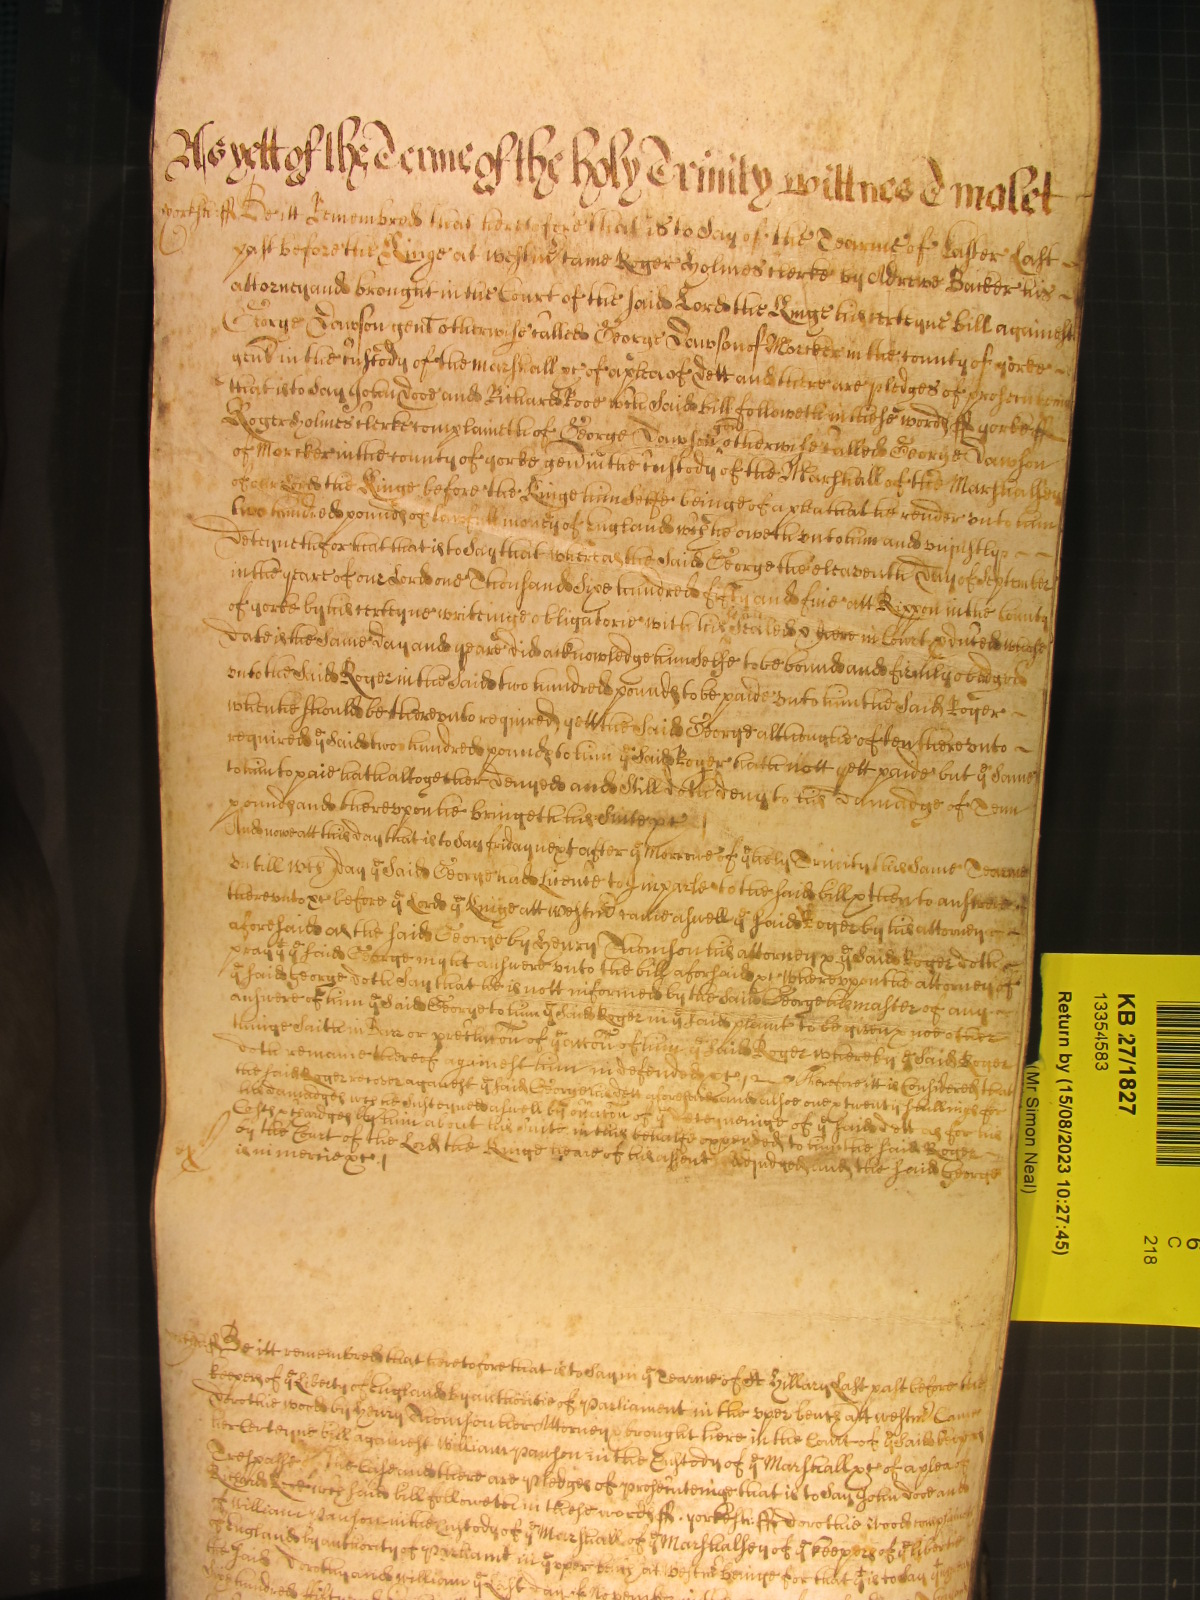 As yett of the Terme of the holy Trinity wittnes T malet
Yorksh ff Be itt Remembred that heretofore that is to say of the Tearme of Easter Last
past before the Kinge at westm̃ came Roger Holmes clerke by Andrewe Barker his
attorney and brought in the Court of the said Lord the Kinge his certeyne bill against
George Dawson gent otherwise called George Dawson of Morcker in the county of yorke
gent in the custody of the marshall &c of a plea of dett and there are pledges of prosecuting
that is to say John Dooe and Richard Rooe wch said bill followeth in these words ff yorke ff
Roger Holmes clerke complaineth of George Dawson gent otherwise called George Dawson
of Morcker in the county of yorke gent in the custody of the Marshall of the Marshalsey
of our Lord the Kinge before the Kinge himselfe beinge of a plea that he render unto him
two hundred pounds of lawfull money of England wch he oweth unto him and unjustly
deteyneth for that that is to say that whereas the said George the eleaventh day of September
in the yeare of our Lord one Thousand Sixe hundred fifty and five att Rippon in the County
of yorke by his certeyne writeinge obligatorie with his seale sealed & here in Court p̃duced whose
date is the same day and yeare did acknowledge himselfe to be bound and firmly obleged
unto the said Roger in the said two hundred pounds to be paide unto him the said Roger
when he should be thereunto required yett the said George although he often thereunto
required ye said two hundred pounds to him ye said Roger hath nott yett paide but ye same
to him to paie hath altogether denyed and still doth deny to his damadge of Tenn
pounds and thereuppon he bringeth his suite &c
And nowe att this day that is to say friday next after ye Morrowe of ye holy Trinity this same Tearme
untill wch day ye said George had licence to imparle to the said bill & then to answere
thereunto &c before ye Lord ye Kinge att westm̃ came aswell ye said Roger by his attorney
aforesaid as the said George by Henry Thomson his attorney & ye said Roger doth
pray yt ye said George might answere unto the bill aforsaid &c whereuppon the attorney of
ye said George doth say that he is nott informed by the said George his master of any
answere of him ye said George to him ye said Roger in ye said plaint to be given & noe other
thinge saith in barr or p̃clusion of ye accon of him ye said Roger whereby ye said Roger
doth remaine thereof against him indefended &c Therefore itt is considered that
the said Roger recover against ye said George his dett aforesaid and alsoe one & twenty shillings for
his damadges wch he susteyned aswell by occasion of ye deteyneinge of ye said dett as for his
costs & chardges by him about his suite in this behalfe expended to him the said Roger
by the Court of the Lord the Kinge heare of his assent adjudged and the said George
is in mercie &c
Be itt remembred that heretofore that is to say in ye Tearme of St Hillary Last past before the
keepers of ye Liberty of England by authoritie of Parliament in the uper bench att westm̃ Came
Dorothie wood by Henry Thomson her Attorney & brought here in the Court of ye said keepers
her certeine bill against William Pawson in the Custody of ye Marshall &c of a plea of
Trespasse on the case and there are pledges of prosecuteinge that is to say John dooe and
Richard Rooe wch said bill followeth in these words ff yorkesh ff Dorothie wood complaineth
of William Pawson in the Custody of ye Marshall of ye Marshalsey of ye keepers of ye libertie
of England by authority of Parliamt in ye uper bench at westm̃ beinge for that yt is to say
the said Dorothy and william ye Last day of November in
one hundred fiftie
KB 27/1827
13354583
Return by (15/08/2023 10:27:45)
(Mr Simon Neal)
6
C
218